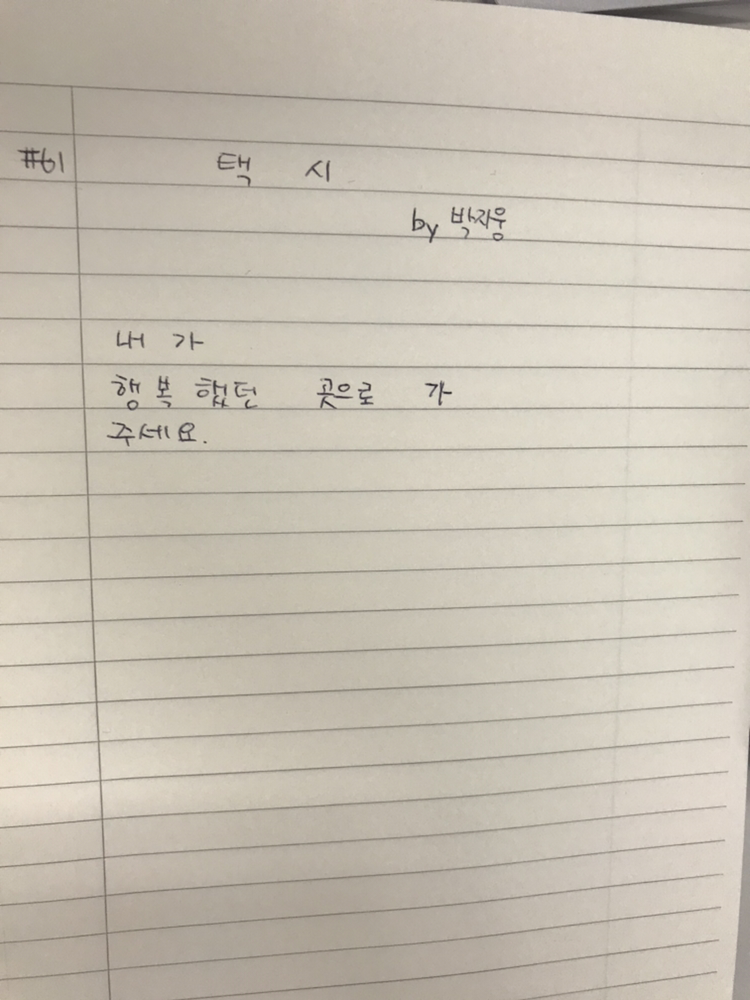 #61 택 시
by 박지웅
내 가
행 복 했던 곳으로 가
주세요.